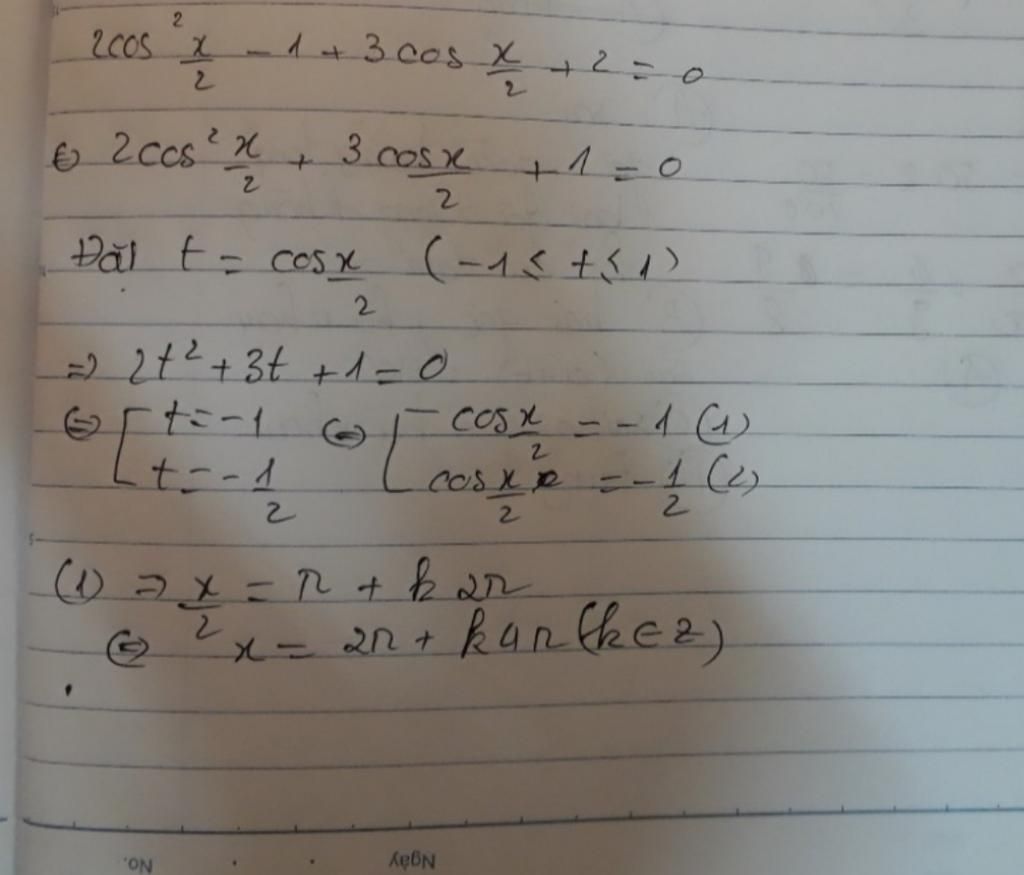 2cos² x/2 - 1 + 3cos x/2 + 2 = 0
⇔ 2cos² x/2 + 3cos x/2 + 1 = 0
Đặt t = cos x/2 (-1 ≤ t ≤ 1)
⇒ 2t² + 3t + 1 = 0
⇔ [ t = -1 ⇔ [ cos x/2 = -1 (1)
t = -1/2 cos x/2 = -1/2 (2)
(1) ⇒ x/2 = π + k2π
⇔ x = 2π + k4π (k ∈ Z)
No. Ngày